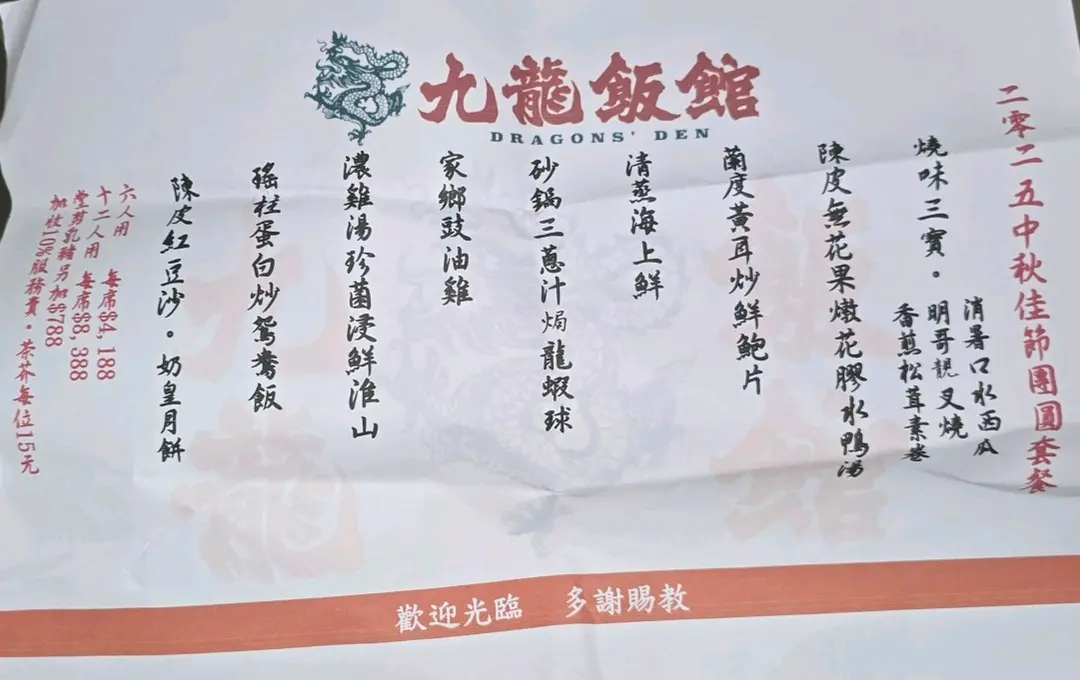 九龍飯館
DRAGONS' DEN
二零二五中秋佳節團圓套餐
燒味三寶。
消暑口水西瓜
明哥靚叉燒
香煎松茸素卷
陳皮無花果燉花膠水鴨湯
蘭度黃耳炒鮮鮑片
清蒸海上鮮
砂鍋三蔥汁焗龍蝦球
家鄉豉油雞
濃雞湯珍菌浸鮮淮山
瑤柱蛋白炒鴛鴦飯
陳皮紅豆沙。奶皇月餅
六人用 每席$4,188
十二人用 每席$8,388
堂剪乳豬另加$788
加收10%服務費。茶芥每位15元
歡迎光臨 多謝賜教